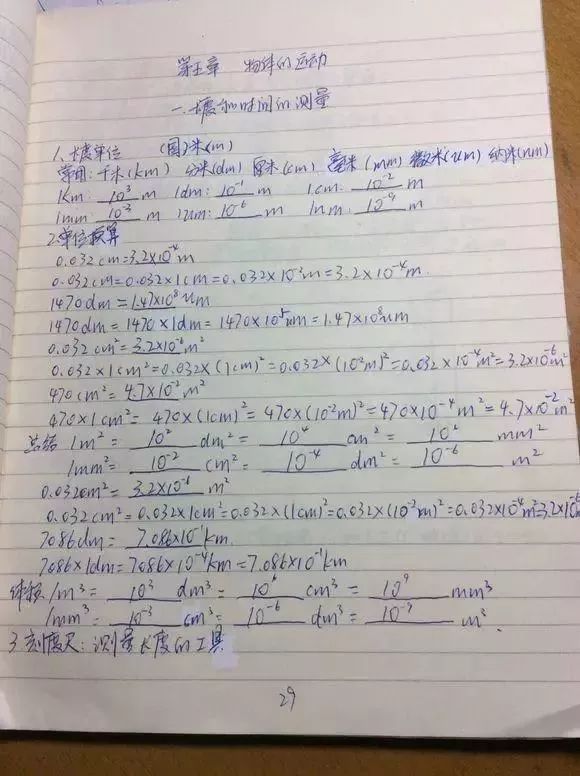 第五章 物体的运动
一.长度和时间的测量
1.长度单位 (国)米(m)
常用:千米(km) 分米(dm) 厘米(cm) 毫米(mm) 微米(um) 纳米(nm)
1km: 10³ m 1dm: 10⁻¹ m 1cm: 10⁻² m
1mm: 10⁻³ m 1um: 10⁻⁶ m 1nm: 10⁻⁹ m
2.单位换算
0.032cm=3.2×10⁻⁴m
0.032cm=0.032×1cm=0.032×10⁻²m=3.2×10⁻⁴m.
1470dm=1.47×10⁸um
1470dm=1470×1dm=1470×10⁵um=1.47×10⁸um
0.032cm²=3.2×10⁻⁶m²
0.032×1cm²=0.032×(1cm)²=0.032×(10⁻²m)²=0.032×10⁻⁴m²=3.2×10⁻⁶m²
470cm²=4.7×10⁻²m²
470×1cm²=470×(1cm)²=470×(10⁻²m)²=470×10⁻⁴m²=4.7×10⁻²m²
总结 1m²= 10² dm²= 10⁴ cm²= 10⁶ mm²
1mm²= 10⁻² cm²= 10⁻⁴ dm²= 10⁻⁶ m²
0.032cm²= 3.2×10⁻⁶ m²
0.032cm²=0.032×1cm²=0.032×(1cm)²=0.032×(10⁻²m)²=0.032×10⁻⁴m²=3.2×10⁻⁶m
7086dm= 7.086×10⁻¹km
7086×1dm=7086×10⁻⁴km=7.086×10⁻¹km
体积 1m³= 10³ dm³= 10⁶ cm³= 10⁹ mm³
1mm³= 10⁻³ cm³= 10⁻⁶ dm³= 10⁻⁹ m³.
3.刻度尺:测量长度的工具
29